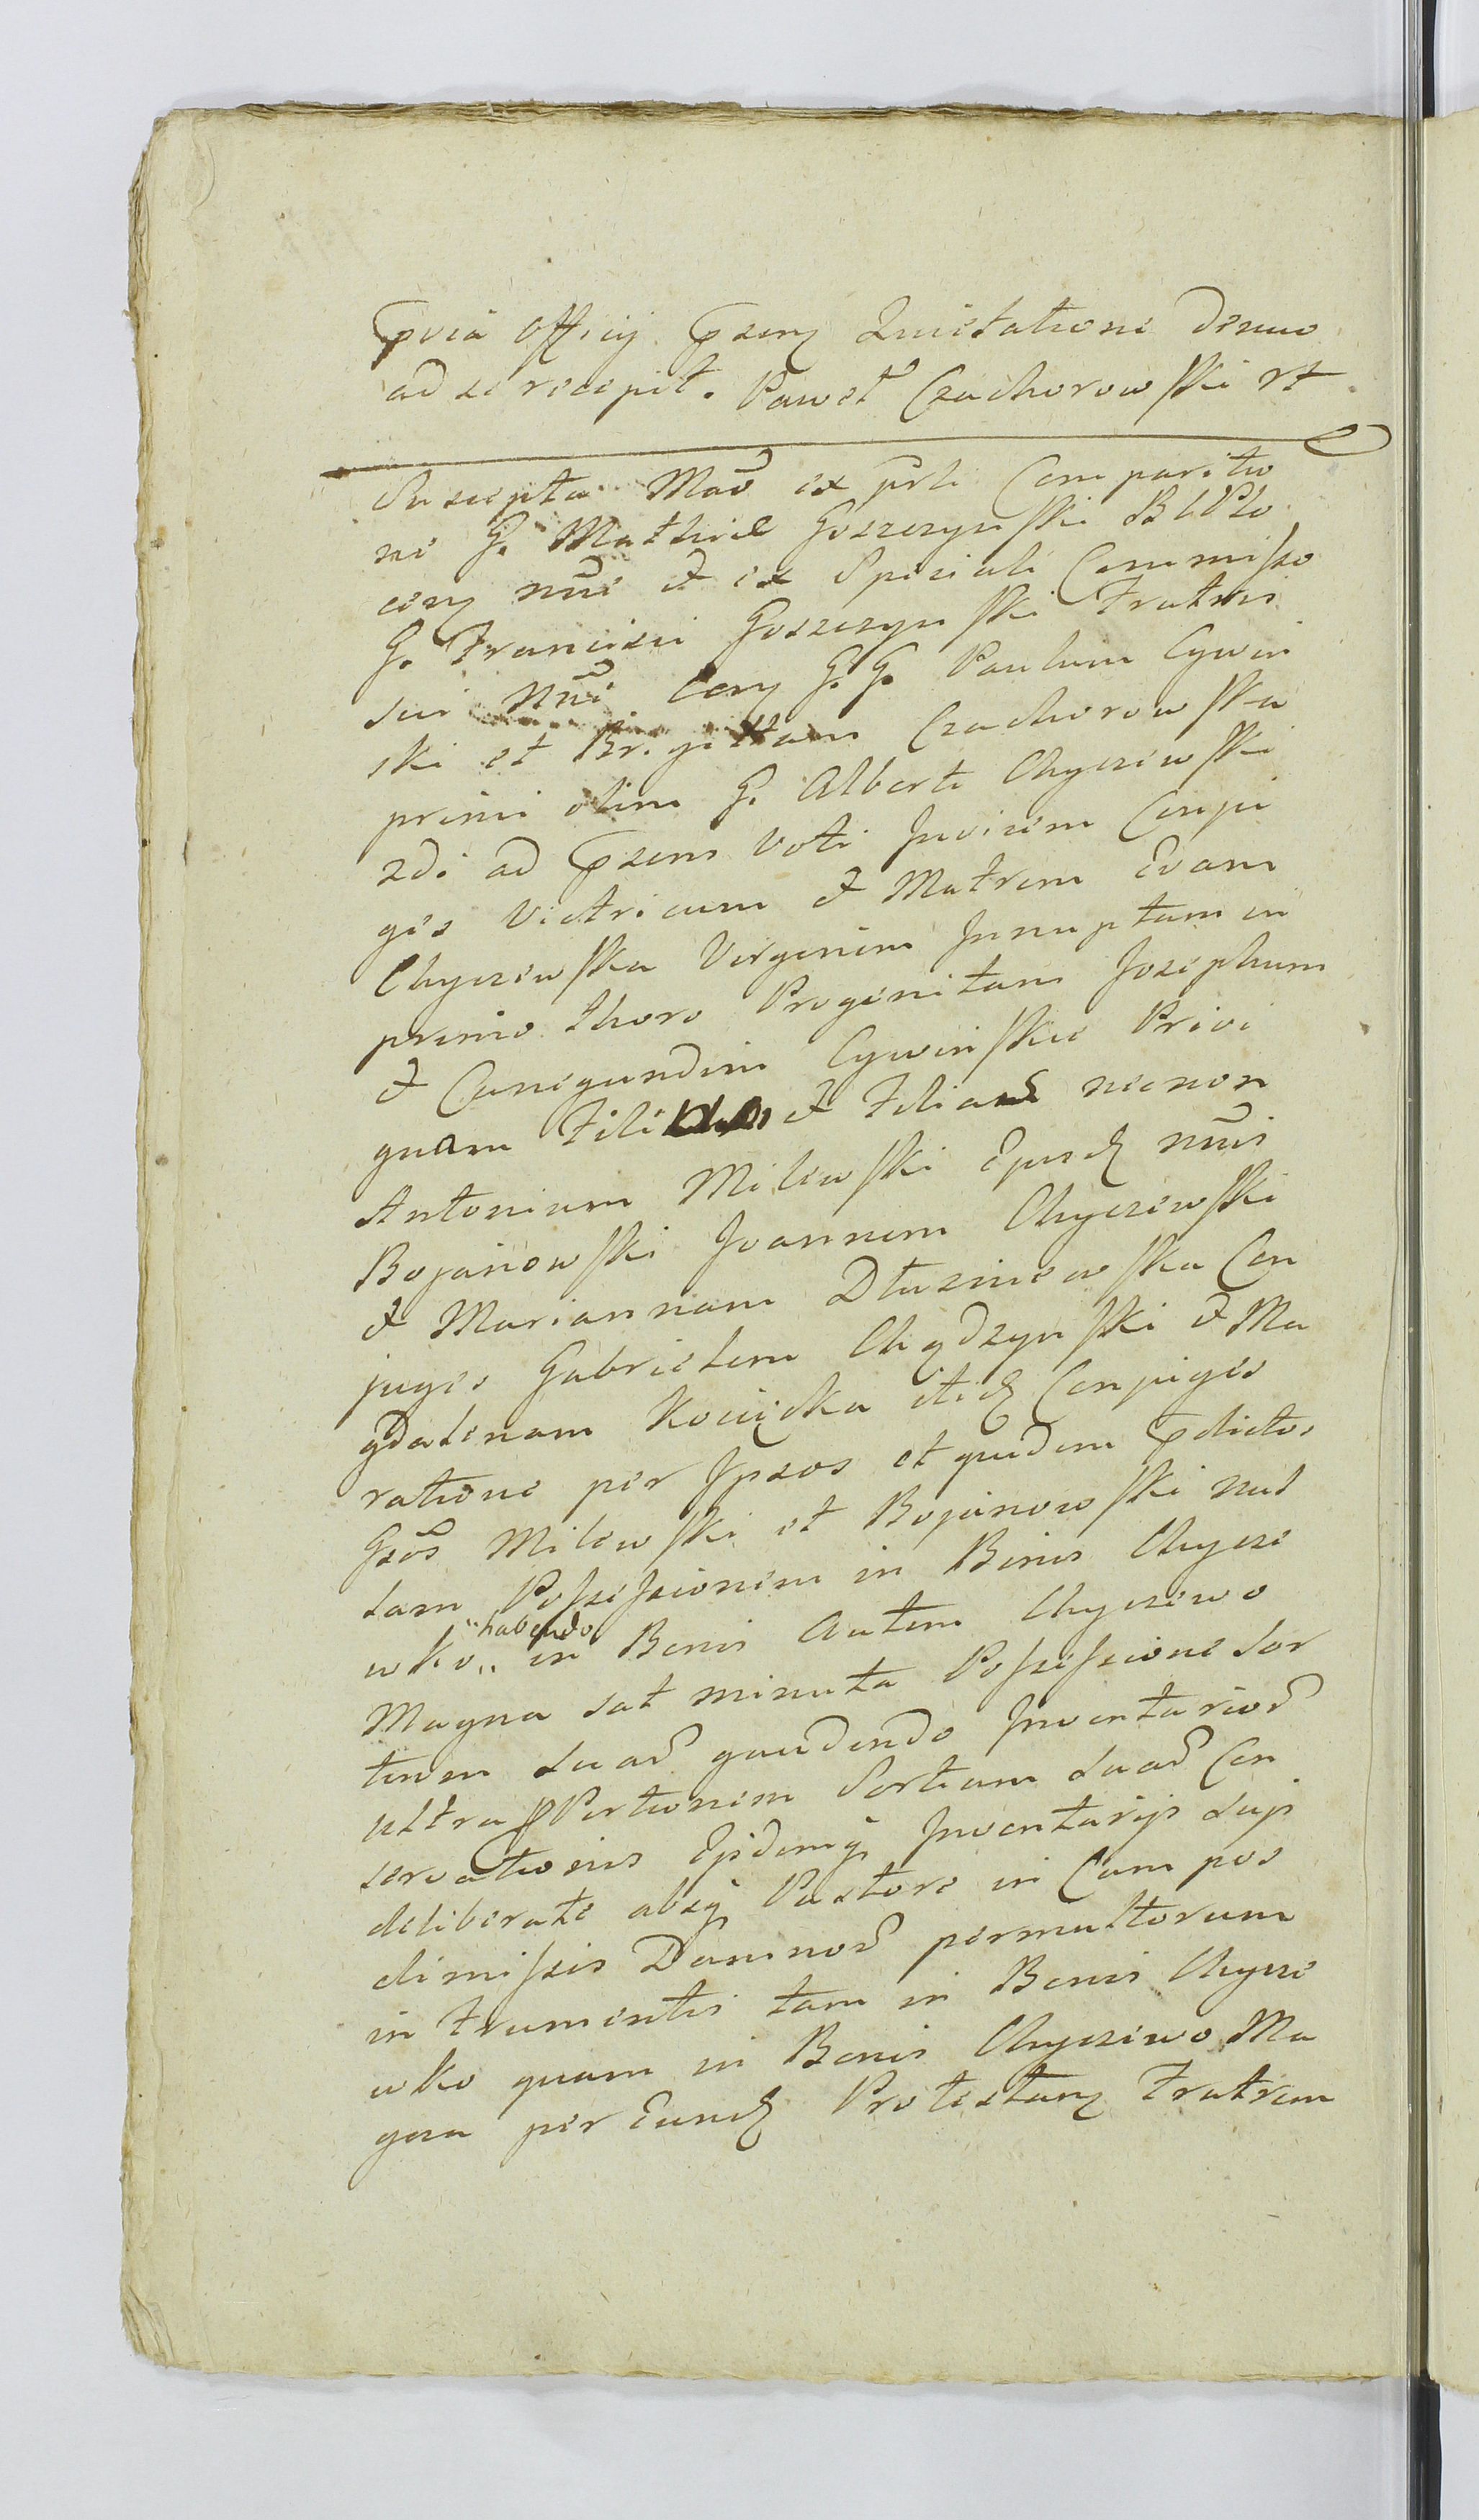 pria Officij pzenz Quietatione denuo
ad se recepit. Paweł Czachorowski rt
Suscepta Mao ex psli Comparitio
ne G. Mathiae Goszczynski BLPlo
cenz nui et ex Speciali Commisso
G. Francisci Goszczynski Fratris
sui Nui Conz G. G. Paulum Cywin
ski et Brigittam Czachorowska
primi olim G. Alberti Chyczewski
2di ad pzens voti Invicem Conju
ges Victricum et Matrem Evam
Chyczewska Virginem Innuptam in
primo thoro Progenitam Josephum
et Cunegundim Cywinskie Privi
gnam Fili et Filias necnon
Antonium Milewski Ejusd nuis
Bojanowski Joannem Chyczewski
et Mariannam Dłuzniewska Con
juges Gabrielem Chądzynski et Ma
gdalenam Kocięcka itid Conjuges
ratione per Ipsos et quidem pdictos
Gsos Milewski et Bojanowski nul
lam Possessionem in Bonis Chycze
wko „habendo„ in Bonis Autem Chyczewo
Magna sat minuta Possessione Sor
tium suar gaudendo Inventarior
ultra pPortionem Sortium suar Con
servationis Ejsdemq Inventarijs sup
deliberate absq Pastore in Campos
dimissis Damnor permultorum
in Frumentis tam in Bonis Chycze
wko quam in Bonis Chyczewo Ma
gna per Eund Protestanz Fratrem